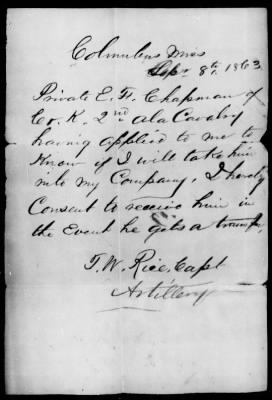 Columbus Miss
Sep. 8th, 1863
Private E. H. Chapman of
Co. K. 2nd Ala Cavalry
having applied to me to
Know if I will take him
into my Company, I hereby
Consent to receive him in
the Event he gets a transfer,
T. W. Rice, Capt
Artillery